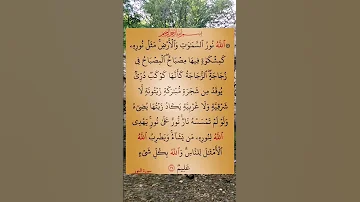 بسم الله الرحمن الرحيم
۞ ٱللَّهُ نُورُ ٱلسَّمَٰوَٰتِ وَٱلْأَرْضِ مَثَلُ نُورِهِۦ
كَمِشْكَوٰةٍ فِيهَا مِصْبَاحٌ ٱلْمِصْبَاحُ فِى
زُجَاجَةٍ ٱلزُّجَاجَةُ كَأَنَّهَا كَوْكَبٌ دُرِّىٌّ
يُوقَدُ مِن شَجَرَةٍ مُّبَٰرَكَةٍ زَيْتُونَةٍ لَّا
شَرْقِيَّةٍ وَلَا غَرْبِيَّةٍ يَكَادُ زَيْتُهَا يُضِىٓءُ
وَلَوْ لَمْ تَمْسَسْهُ نَارٌ نُّورٌ عَلَىٰ نُورٍ يَهْدِى
ٱللَّهُ لِنُورِهِۦ مَن يَشَآءُ وَيَضْرِبُ ٱللَّهُ
ٱلْأَمْثَٰلَ لِلنَّاسِ وَٱللَّهُ بِكُلِّ شَىْءٍ
عَلِيمٌ